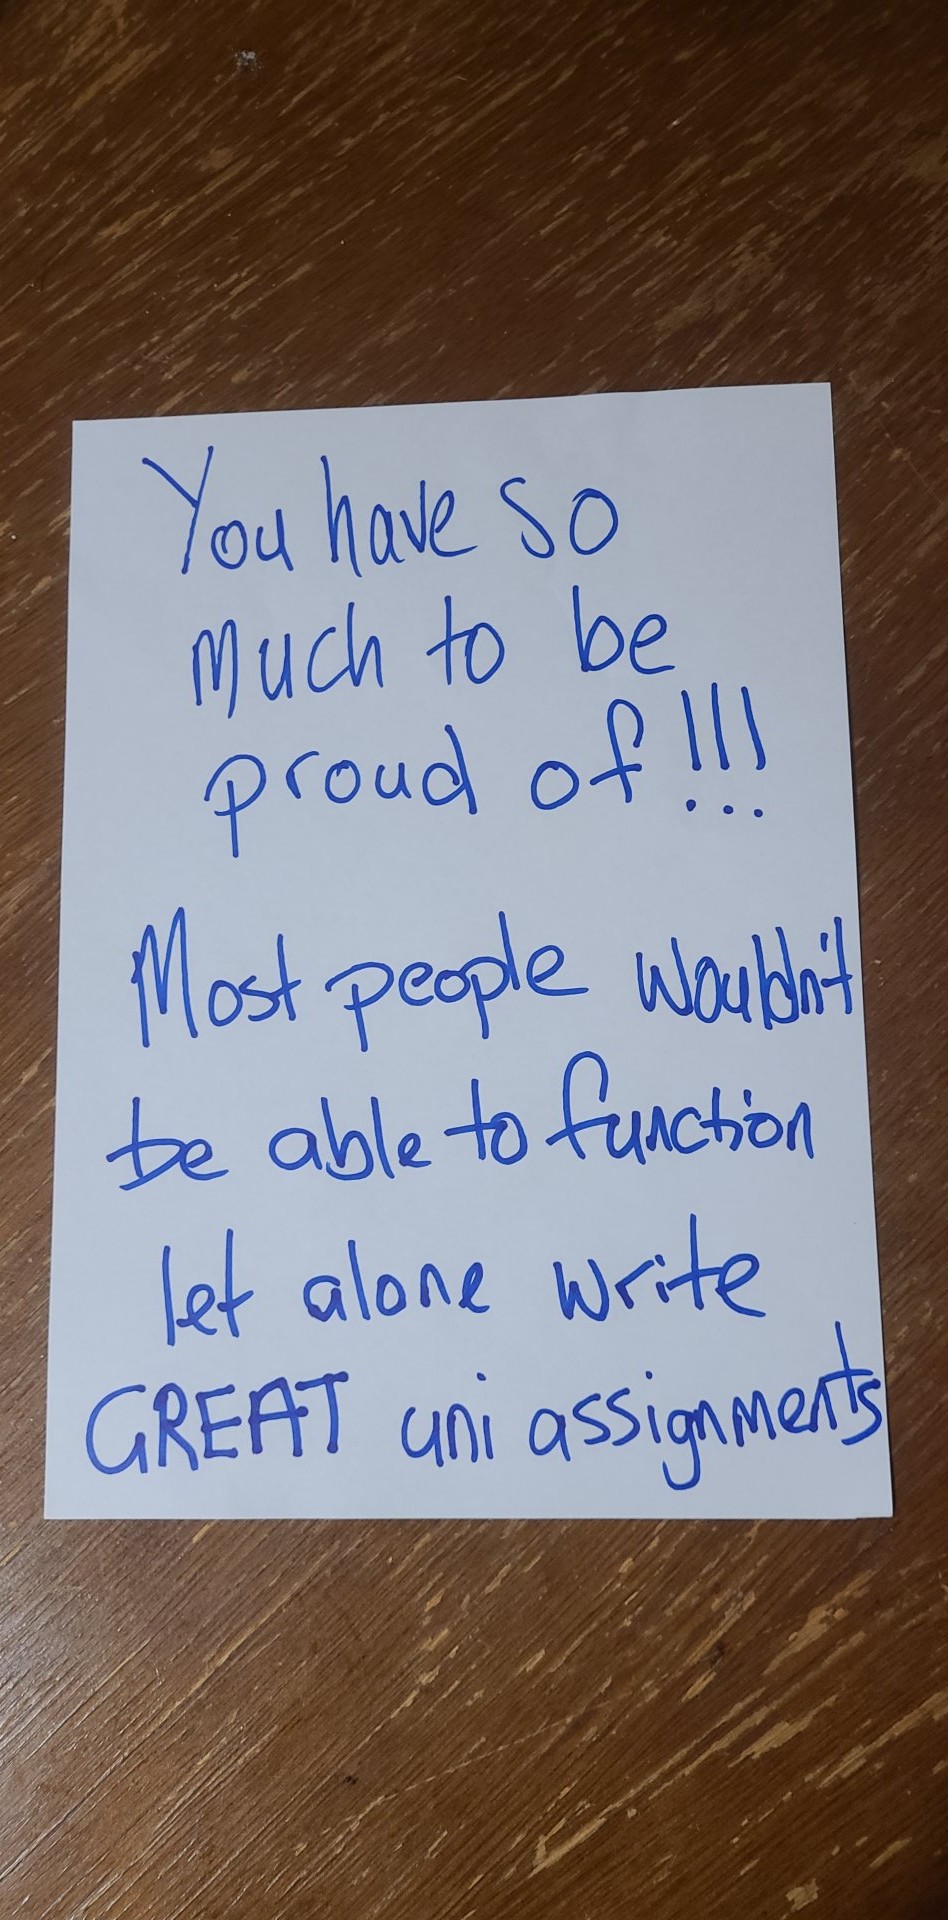 You have so
much to be
proud of!!!
Most people wouldn't
be able to function
let alone write
GREAT uni assignments